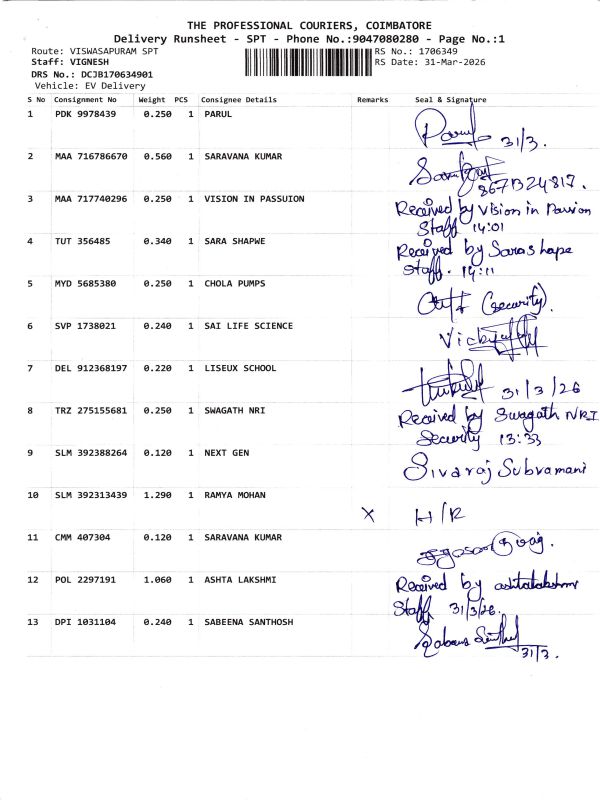 THE PROFESSIONAL COURIERS, COIMBATORE
Delivery Runsheet - SPT - Phone No.:9047080280 - Page No.:1
Route: VISWASAPURAM SPT
RS No.: 1706349
Staff: VIGNESH
RS Date: 31-Mar-2026
DRS No.: DCJB170634901
Vehicle: EV Delivery
S No Consignment No Weight PCS Consignee Details Remarks Seal & Signature
1 PDK 9978439 0.250 1 PARUL
Parul 31/3.
2 MAA 716786670 0.560 1 SARAVANA KUMAR
867B24817.
3 MAA 717740296 0.250 1 VISION IN PASSUION
Received by Vision in Passion
Staff 14:01
4 TUT 356485 0.340 1 SARA SHAPWE
Received by Sarashape
Staff. 14:11
5 MYD 5685380 0.250 1 CHOLA PUMPS
(security).
6 SVP 1738021 0.240 1 SAI LIFE SCIENCE
7 DEL 912368197 0.220 1 LISEUX SCHOOL
31/3/26
8 TRZ 275155681 0.250 1 SWAGATH NRI
Received by Swagath NRI
Security 13:33
9 SLM 392388264 0.120 1 NEXT GEN
Sivaraj Subramani
10 SLM 392313439 1.290 1 RAMYA MOHAN
X H/R
11 CMM 407304 0.120 1 SARAVANA KUMAR
12 POL 2297191 1.060 1 ASHTA LAKSHMI
Received by ashtalakshmi
Staff 31/3/26.
13 DPI 1031104 0.240 1 SABEENA SANTHOSH
31/3.